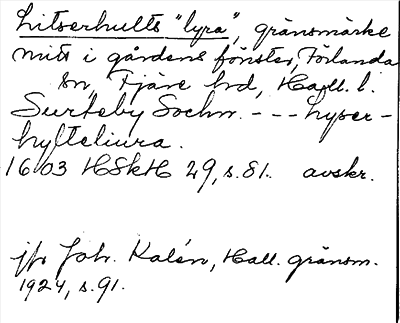 Litserhults "lyra", gränsmärke
mitt i gårdens fönster, Förlanda
sn, Fjäre hd, Hall. l.
Surteby Sochn. - - - Lyser-
hyfteliura.
1603 HSkH 29, s. 81. avskr.
jfr Joh. Kalén, Hall. gränsm.
1924, s. 91.